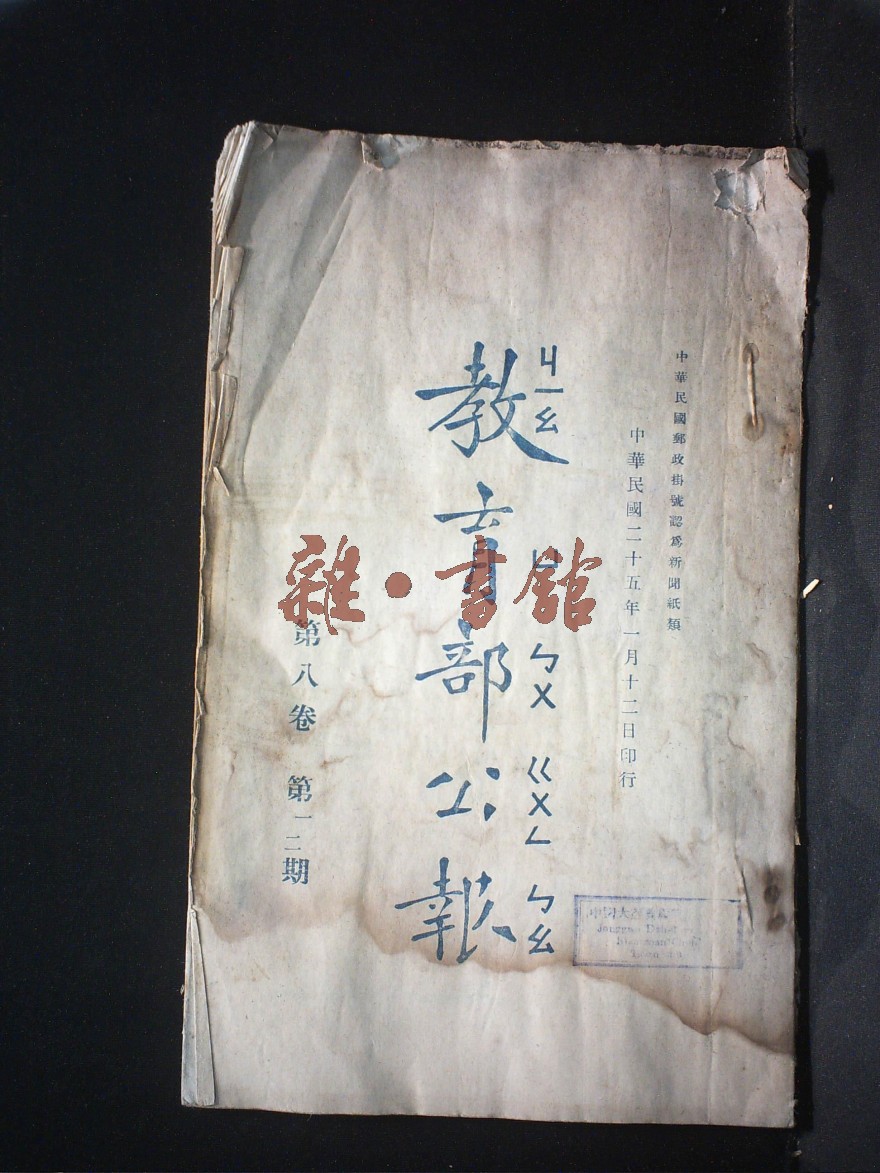 中華民國郵政掛號認爲新聞紙類
中華民國二十五年一月十二日印行
ㄐㄧㄠ ㄩ ㄅㄨ ㄍㄨㄥ ㄅㄠ
教育部公報
第八卷 第一二期
雜·書館